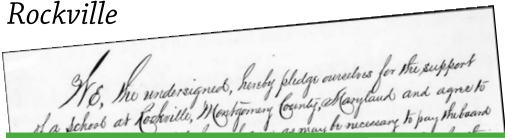 Rockville
We, the undersigned, hereby pledge ourselves for the support
of a school at Rockville, Montgomery County, Maryland and agree to
as may be necessary to pay the board